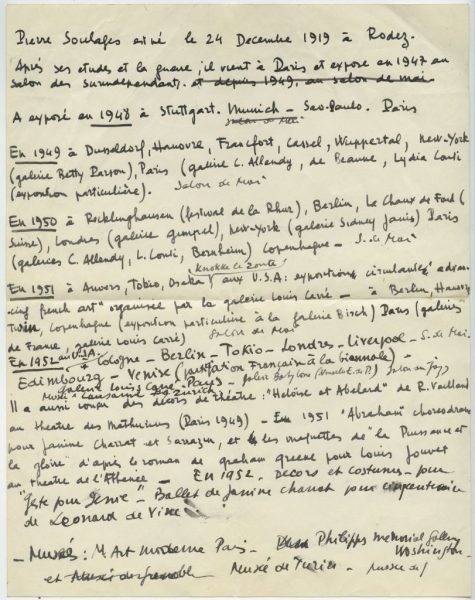 Pierre Soulages est né le 24 Decembre 1919 à Rodez.
Après ses etudes et la guerre, il vient à Paris et expose en 1947 au
Salon des surindépendants. et depuis 1949, au salon de mai
A exposé en 1948 à Stuttgart. Munich - Sao-Paulo. Paris
Salon de Mai
En 1949 à Dusseldorf, Hanovre, Francfort, Cassel, Wuppertal, New-York
(galerie Betty Parson), Paris (galerie C. Allendy, de Beaune, Lydia Conti
(exposition particulière). Salon de Mai
En 1950 à Recklinghausen (festival de la Rhur), Berlin, La Chaux de Fond (
Suisse), Londres (galerie gimpel), New-York (galerie Sidney Janis) Paris
(galeries C. Allendy, L. Conti, Bernheim) Copenhague - S. de Mai
Knokke le Zoute
En 1951 à Anvers, Tokio, Osaka, aux U.S.A: expositions circulante "advan-
cing french art" organisée par la galerie Louis Carré - à Berlin, Hanovre,
Turin, Copenhague (exposition particulière à la galerie Birch) Paris (galeries
de France, galerie Louis Carré) Salon de Mai
En 1952 aux USA
Cologne - Berlin - Tokio - Londres - Liverpool - S. de Mai
Edimbourg - Venise (invitation Française à la biennale) -
Galerie Louis Carré - Paris - galerie Babylone
Musée Lausanne Zurich
Il a aussi conçu des décors de théatre: "Heloïse et Abelard" de R. Vailland
au theatre des Mathurins (Paris 1949) - En 1951 "Abraham" choreodrame
pour Janine Charrat et Sarrazin, et les maquettes de "la Puissance et
la gloire" d'après le roman de graham greene pour Louis Jouvet
au theatre de l'Athenée - En 1952. Decors et costumes pour
"geste pour genie" - Ballet de Janine Charrat pour cinquentenaire
de Leonard de Vinci -
- Musées: M. Art moderne Paris - Philipps memorial gallery
Washington -
et Musée de grenoble Musée de Turin - Musee de